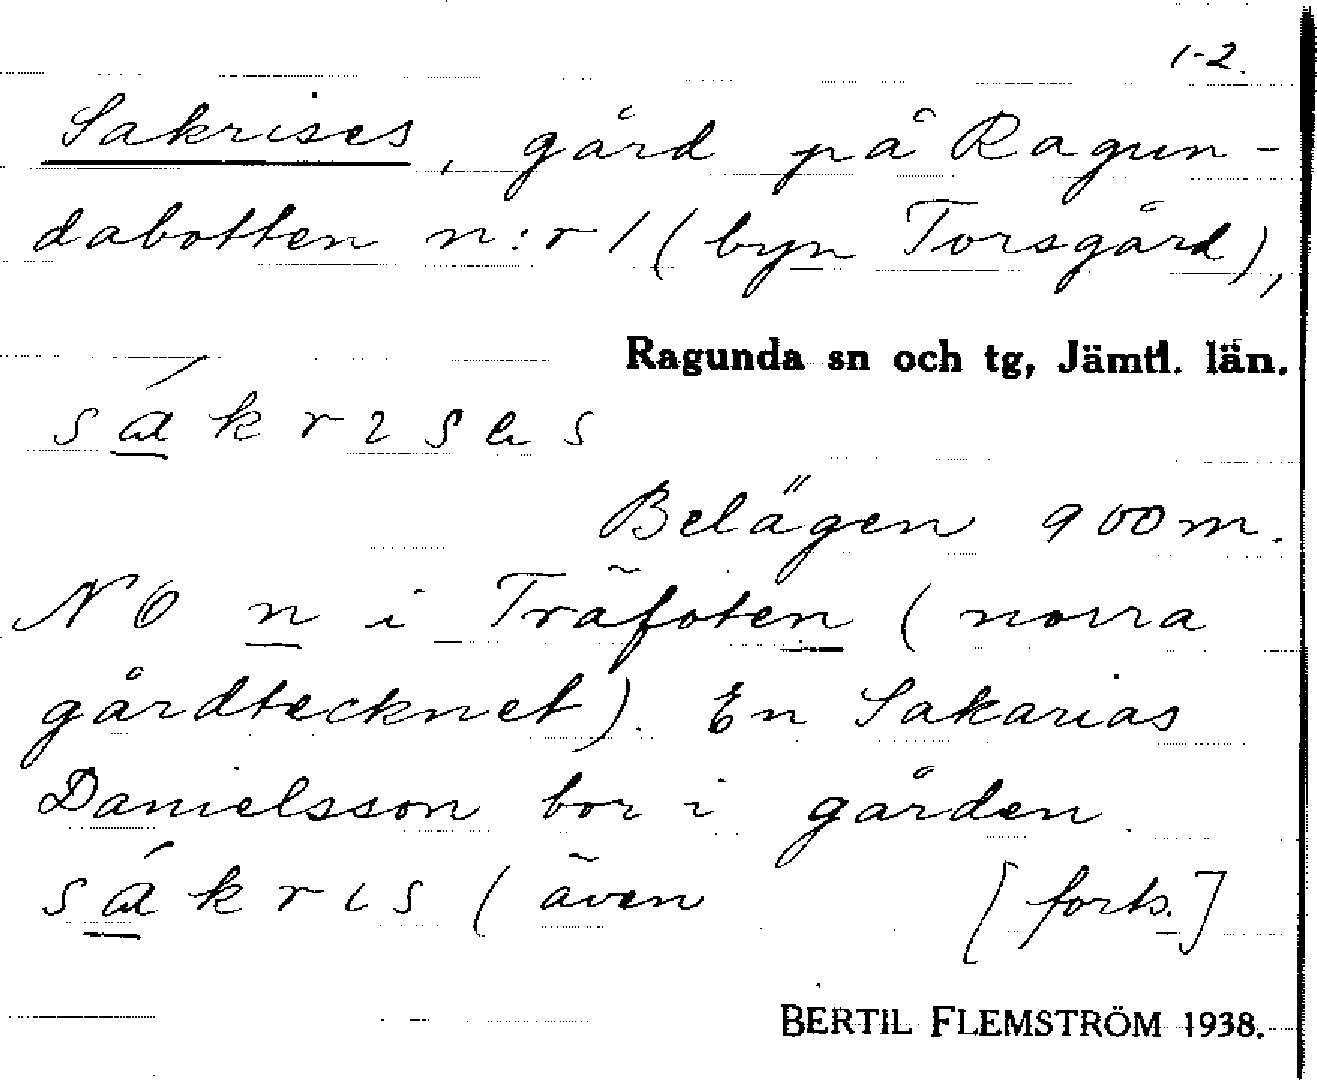 1-2.
Sakrises, gård på Ragun-
dabotten n:r 1 (byn Torsgård),
Ragunda sn och tg, Jämtl. län.
Belägen 900 m.
NO n i Träfoten (norra
gårdtecknet). En Sakarias
Danielsson bor i gården.
sákris (även [forts.]
BERTIL FLEMSTRÖM 1938.